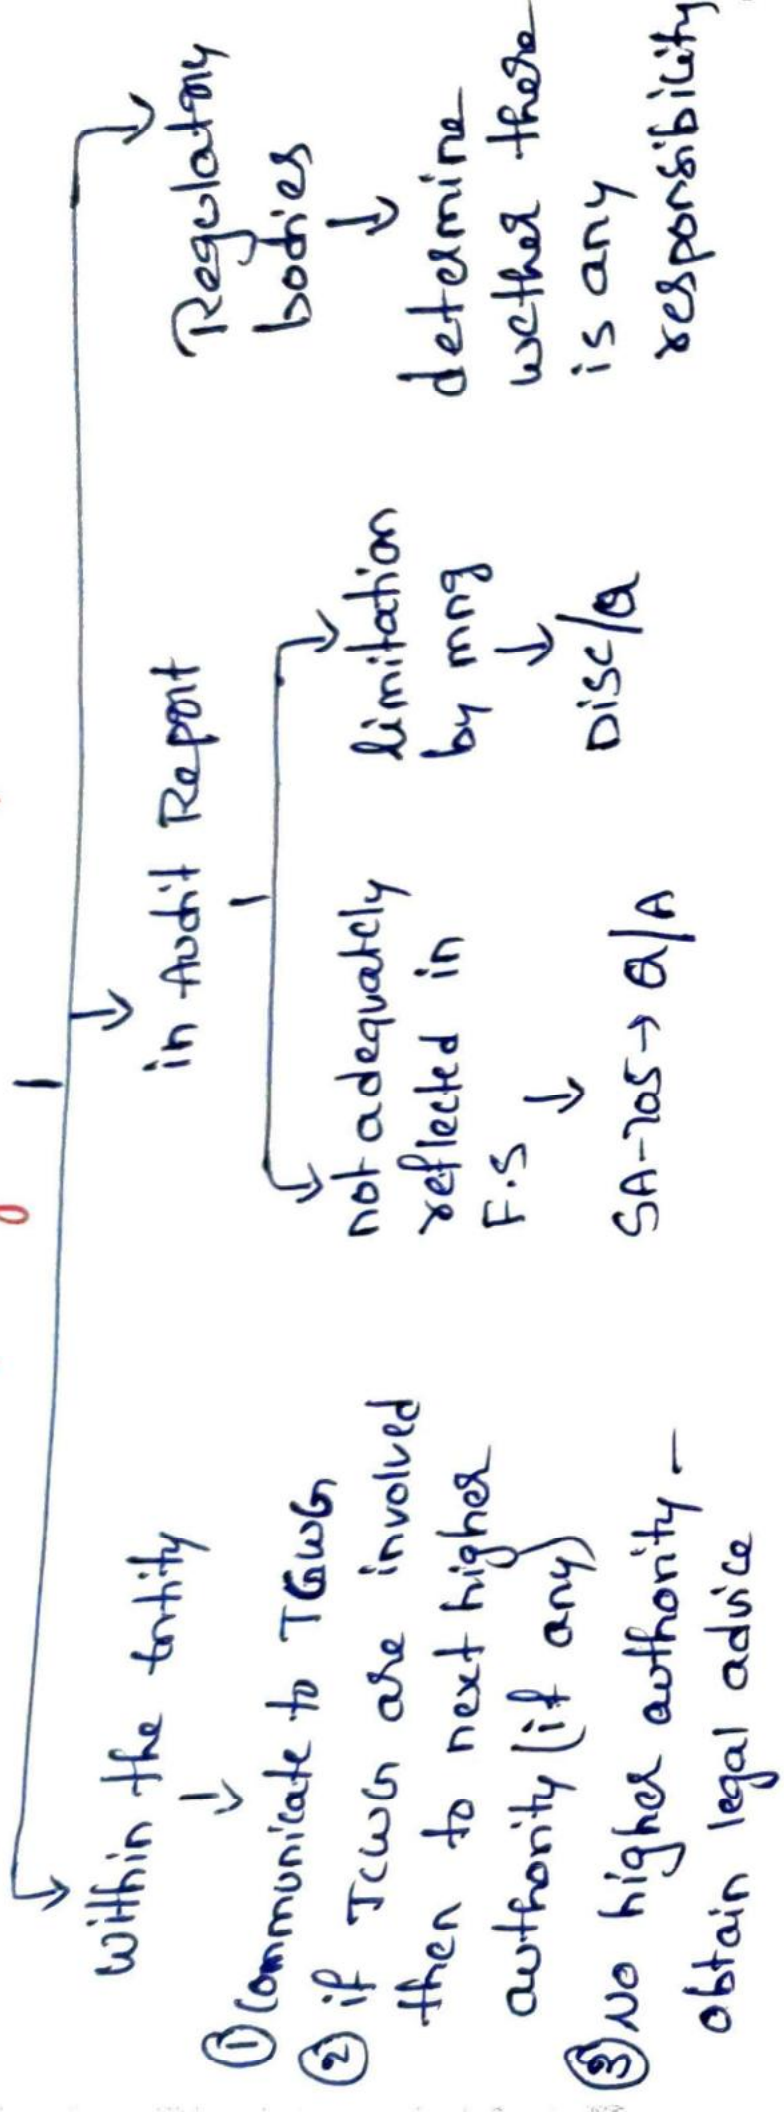 Within the Entity
① Communicate to TGWG
② if TCWG are involved
then to next higher
authority (if any)
③ No higher authority –
obtain legal advice
in Audit Report
not adequately
reflected in
F.S
SA-705 → Q/A
limitation
by mng
Disc/Q
Regulatory
bodies
determine
wether there
is any
responsibility